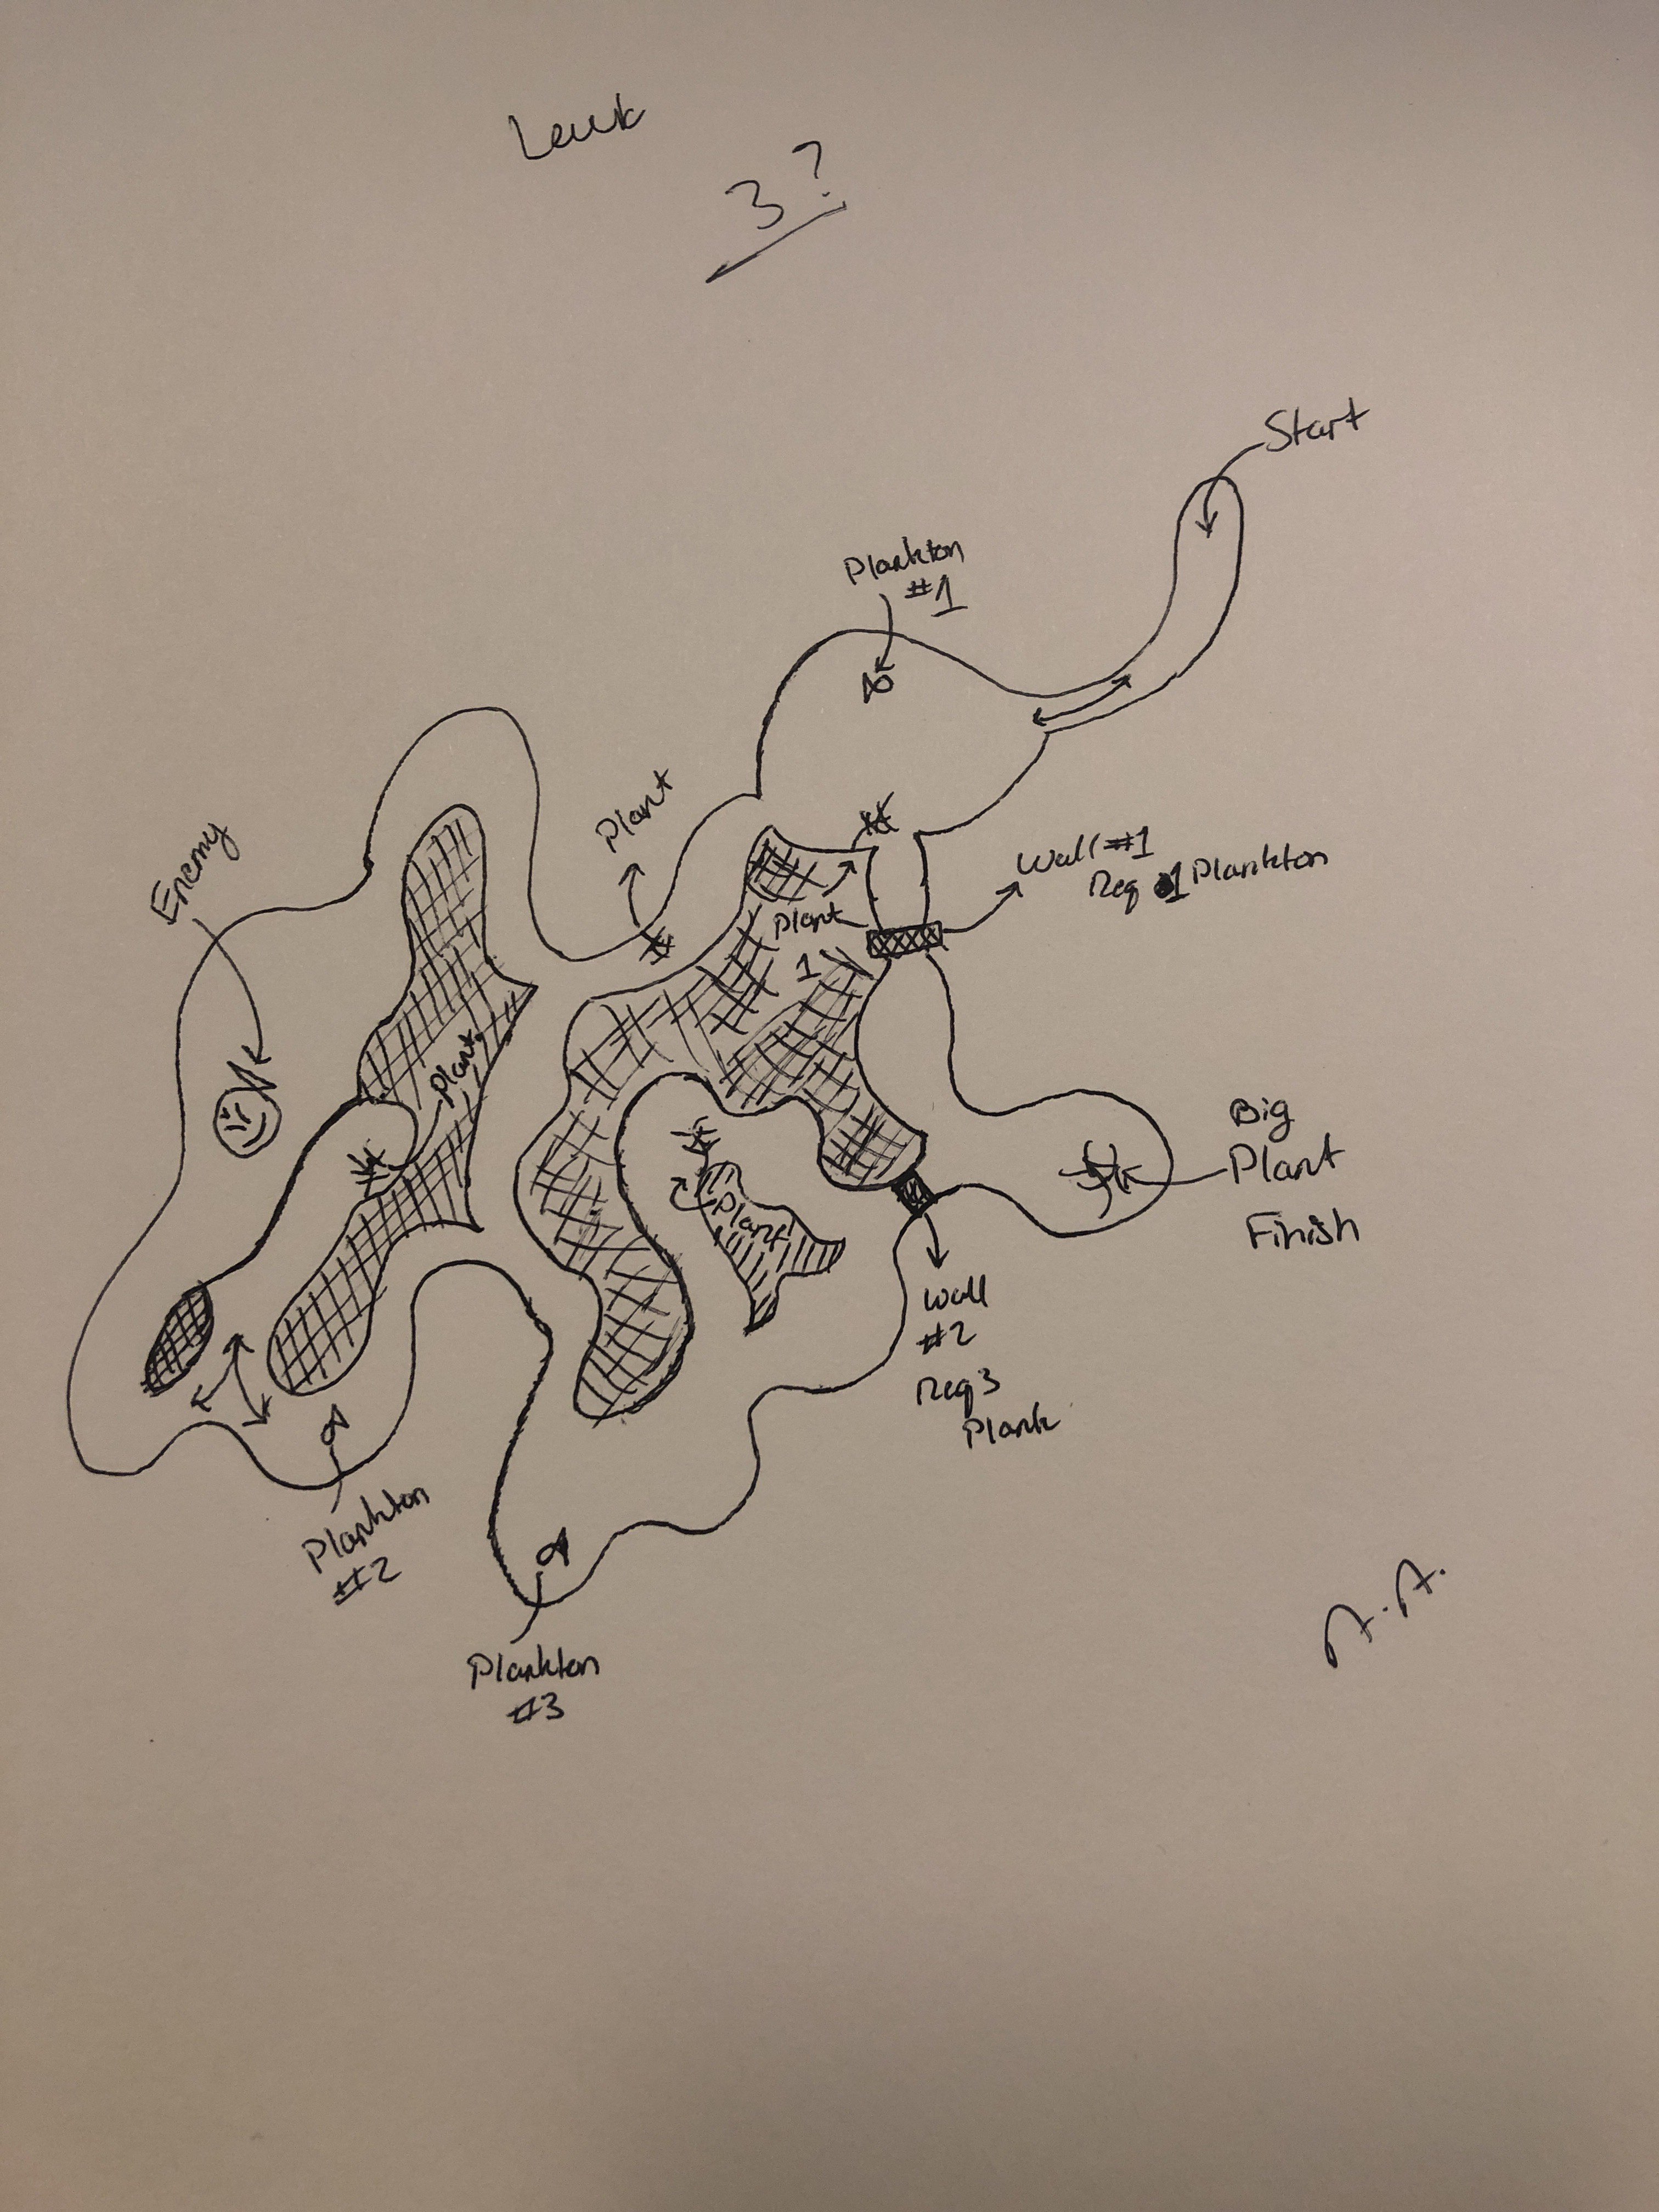 3?
Start
Plankton
#1
Plant
Enemy
Wall #1
Req 1 Plankton
Plant
1
Plant
Plant
Big
Plant
Finish
Wall
#2
Req 3
Plank
Plankton
#2
Plankton
#3
A.A.